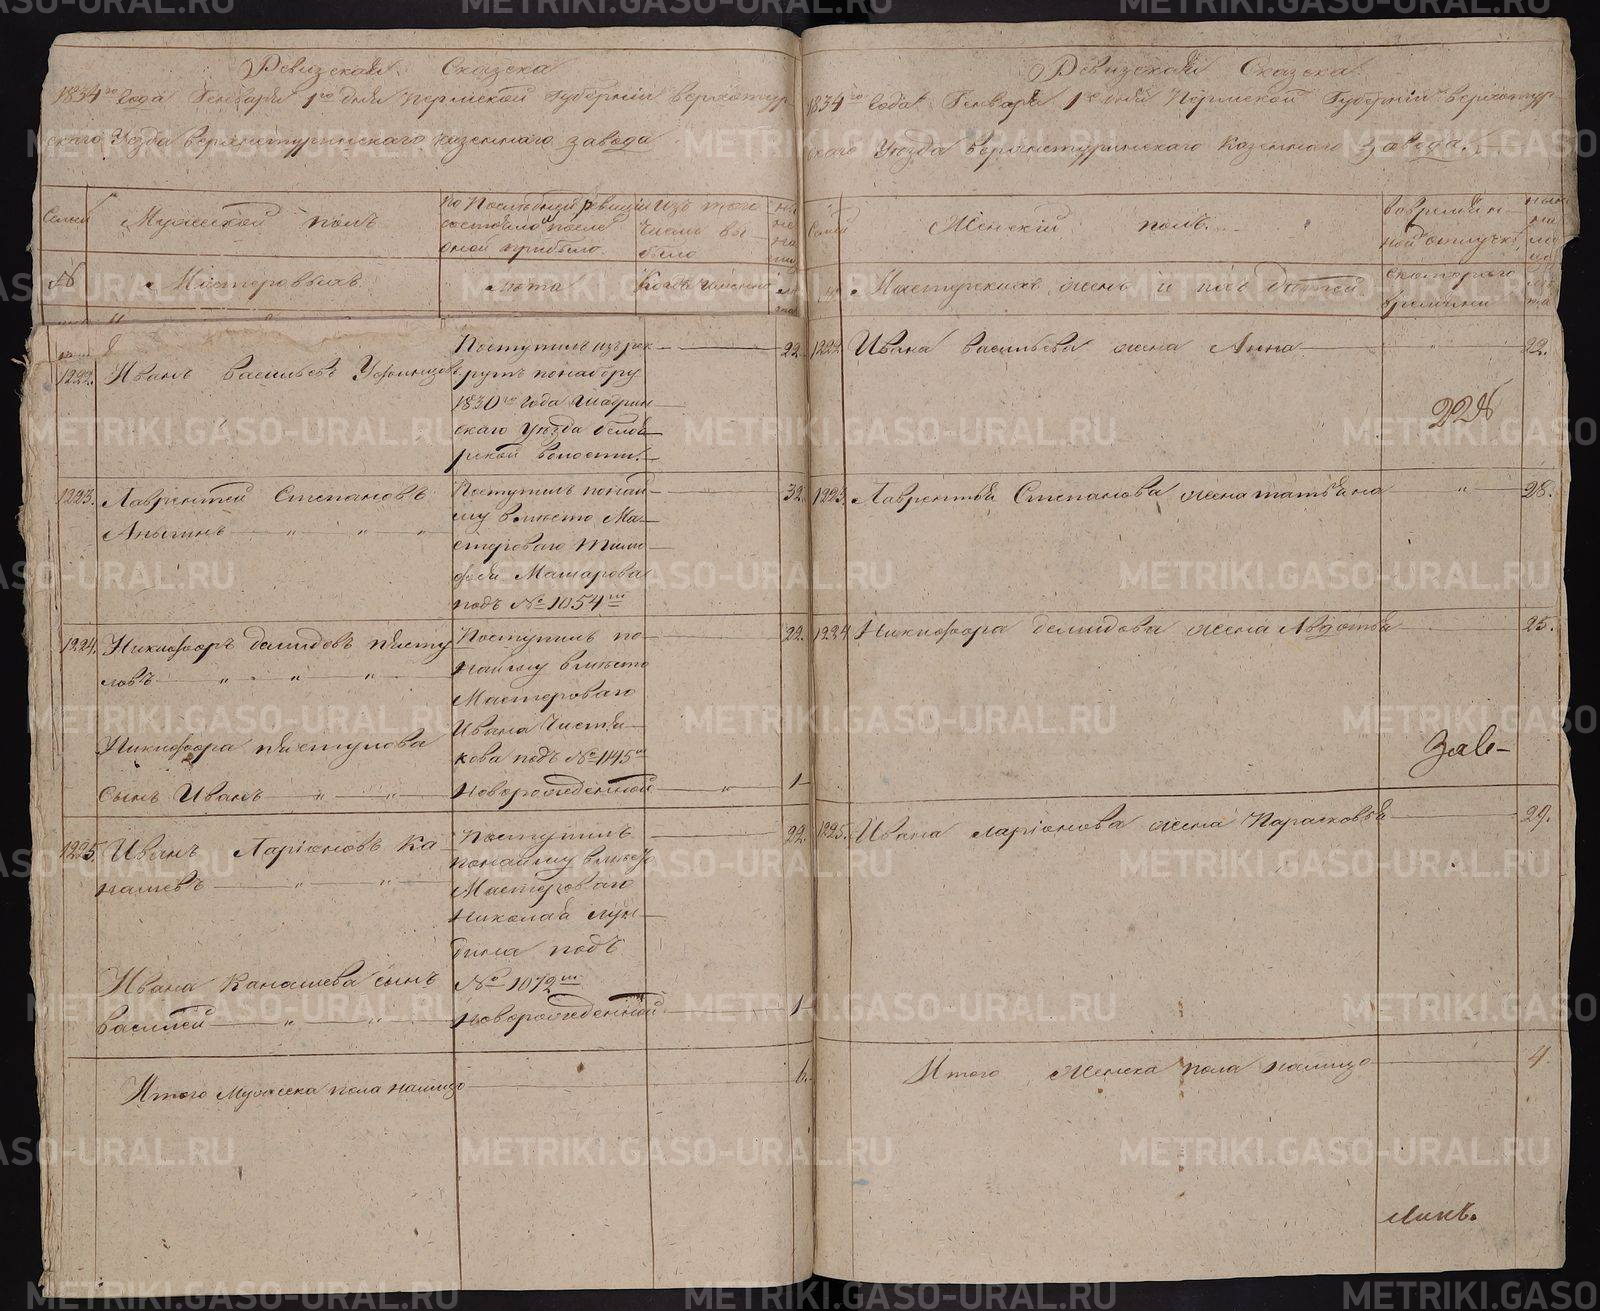 Ревизская Сказска
1834го года Генваря 1го дня Пермской Губернии Верхотур
скаго Уезда Верхнетуринскаго казеннаго завода
Семей
Мужеской полъ
По Последней ревизии
состояло и после
оной прибыло
изъ того
числа вы
было
№
Мастеровыхъ
Лета
Когда именно
1222. Иванъ Васильевъ
Поступилъ изъ рек
рутъ по набору
1830го года Шадрин
скаго Уезда Белоя
рской волости.
22
1223. Лаврентей Степановъ
Аньгинъ
Поступилъ по най
му вместо Ма
стероваго Тимо
фея Макарова
подъ № 1054м
32
1224. Никифоръ Демидовъ Писту
ловъ
Поступилъ по
найму вместо
Мастероваго
Ивана Чистя
кова подъ № 1145м
22.
Никифора Пистулова
сынъ Иванъ
Новорожденной
1
1225. Иванъ Ларiоновъ Ка
нашевъ
Поступилъ
по найму вместо
Мастероваго
Николая Лун
дина подъ
№ 1072м
22
Ивана Канашева сынъ
Василей
Новорожденной
1
Итого Мужеска пола налицо
6.
Ревизская Сказска
1834го года Генваря 1го дня Пермской Губернии Верхотур
скаго Уезда Верхнетуринскаго Казеннаго завода.
Семей
Женскiй полъ.
Во времян
ной отлучке
№
Мастерскихъ женъ и ихъ детей
с котораго
времени
1222 Ивана Васильева жена Анна
22.
228
1223. Лаврентья Степанова жена Татьяна
28.
1224 Никифора Демидова жена Авдотья
25.
Заве-
1225. Ивана Ларiонова жена Парасковья
29.
Итого Женска пола налицо
4.
METRIKI.GASO-URAL.RU